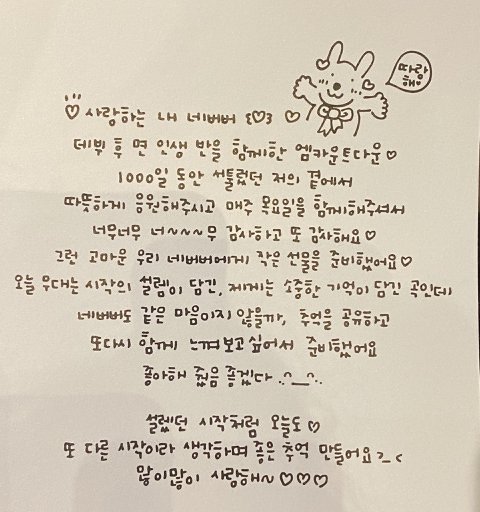 따랑
해♥
♡ 사랑하는 내 네버버 ꒰♡꒱ ♡
데뷔 후 먼 인생 반을 함께한 엠카운트다운♡
1000일 동안 서툴렀던 저의 곁에서
따뜻하게 응원해주시고 매주 목요일을 함께해주셔서
너무너무 너~~~~무 감사하고 또 감사해요♡
그런 고마운 우리 네버버에게 작은 선물을 준비했어요♡
오늘 무대는 시작의 설렘이 담긴, 저에게는 소중한 기억이 담긴 곡인데
네버버도 같은 마음이지 않을까, 추억을 공유하고
또다시 함께 느껴보고싶어서 준비했어요
좋아해 줬음 좋겠다 :^__^:
설렜던 시작처럼 오늘도♡
또 다른 시작이라 생각하며 좋은 추억 만들어요>_<
많이많이 사랑해~♡♡♡